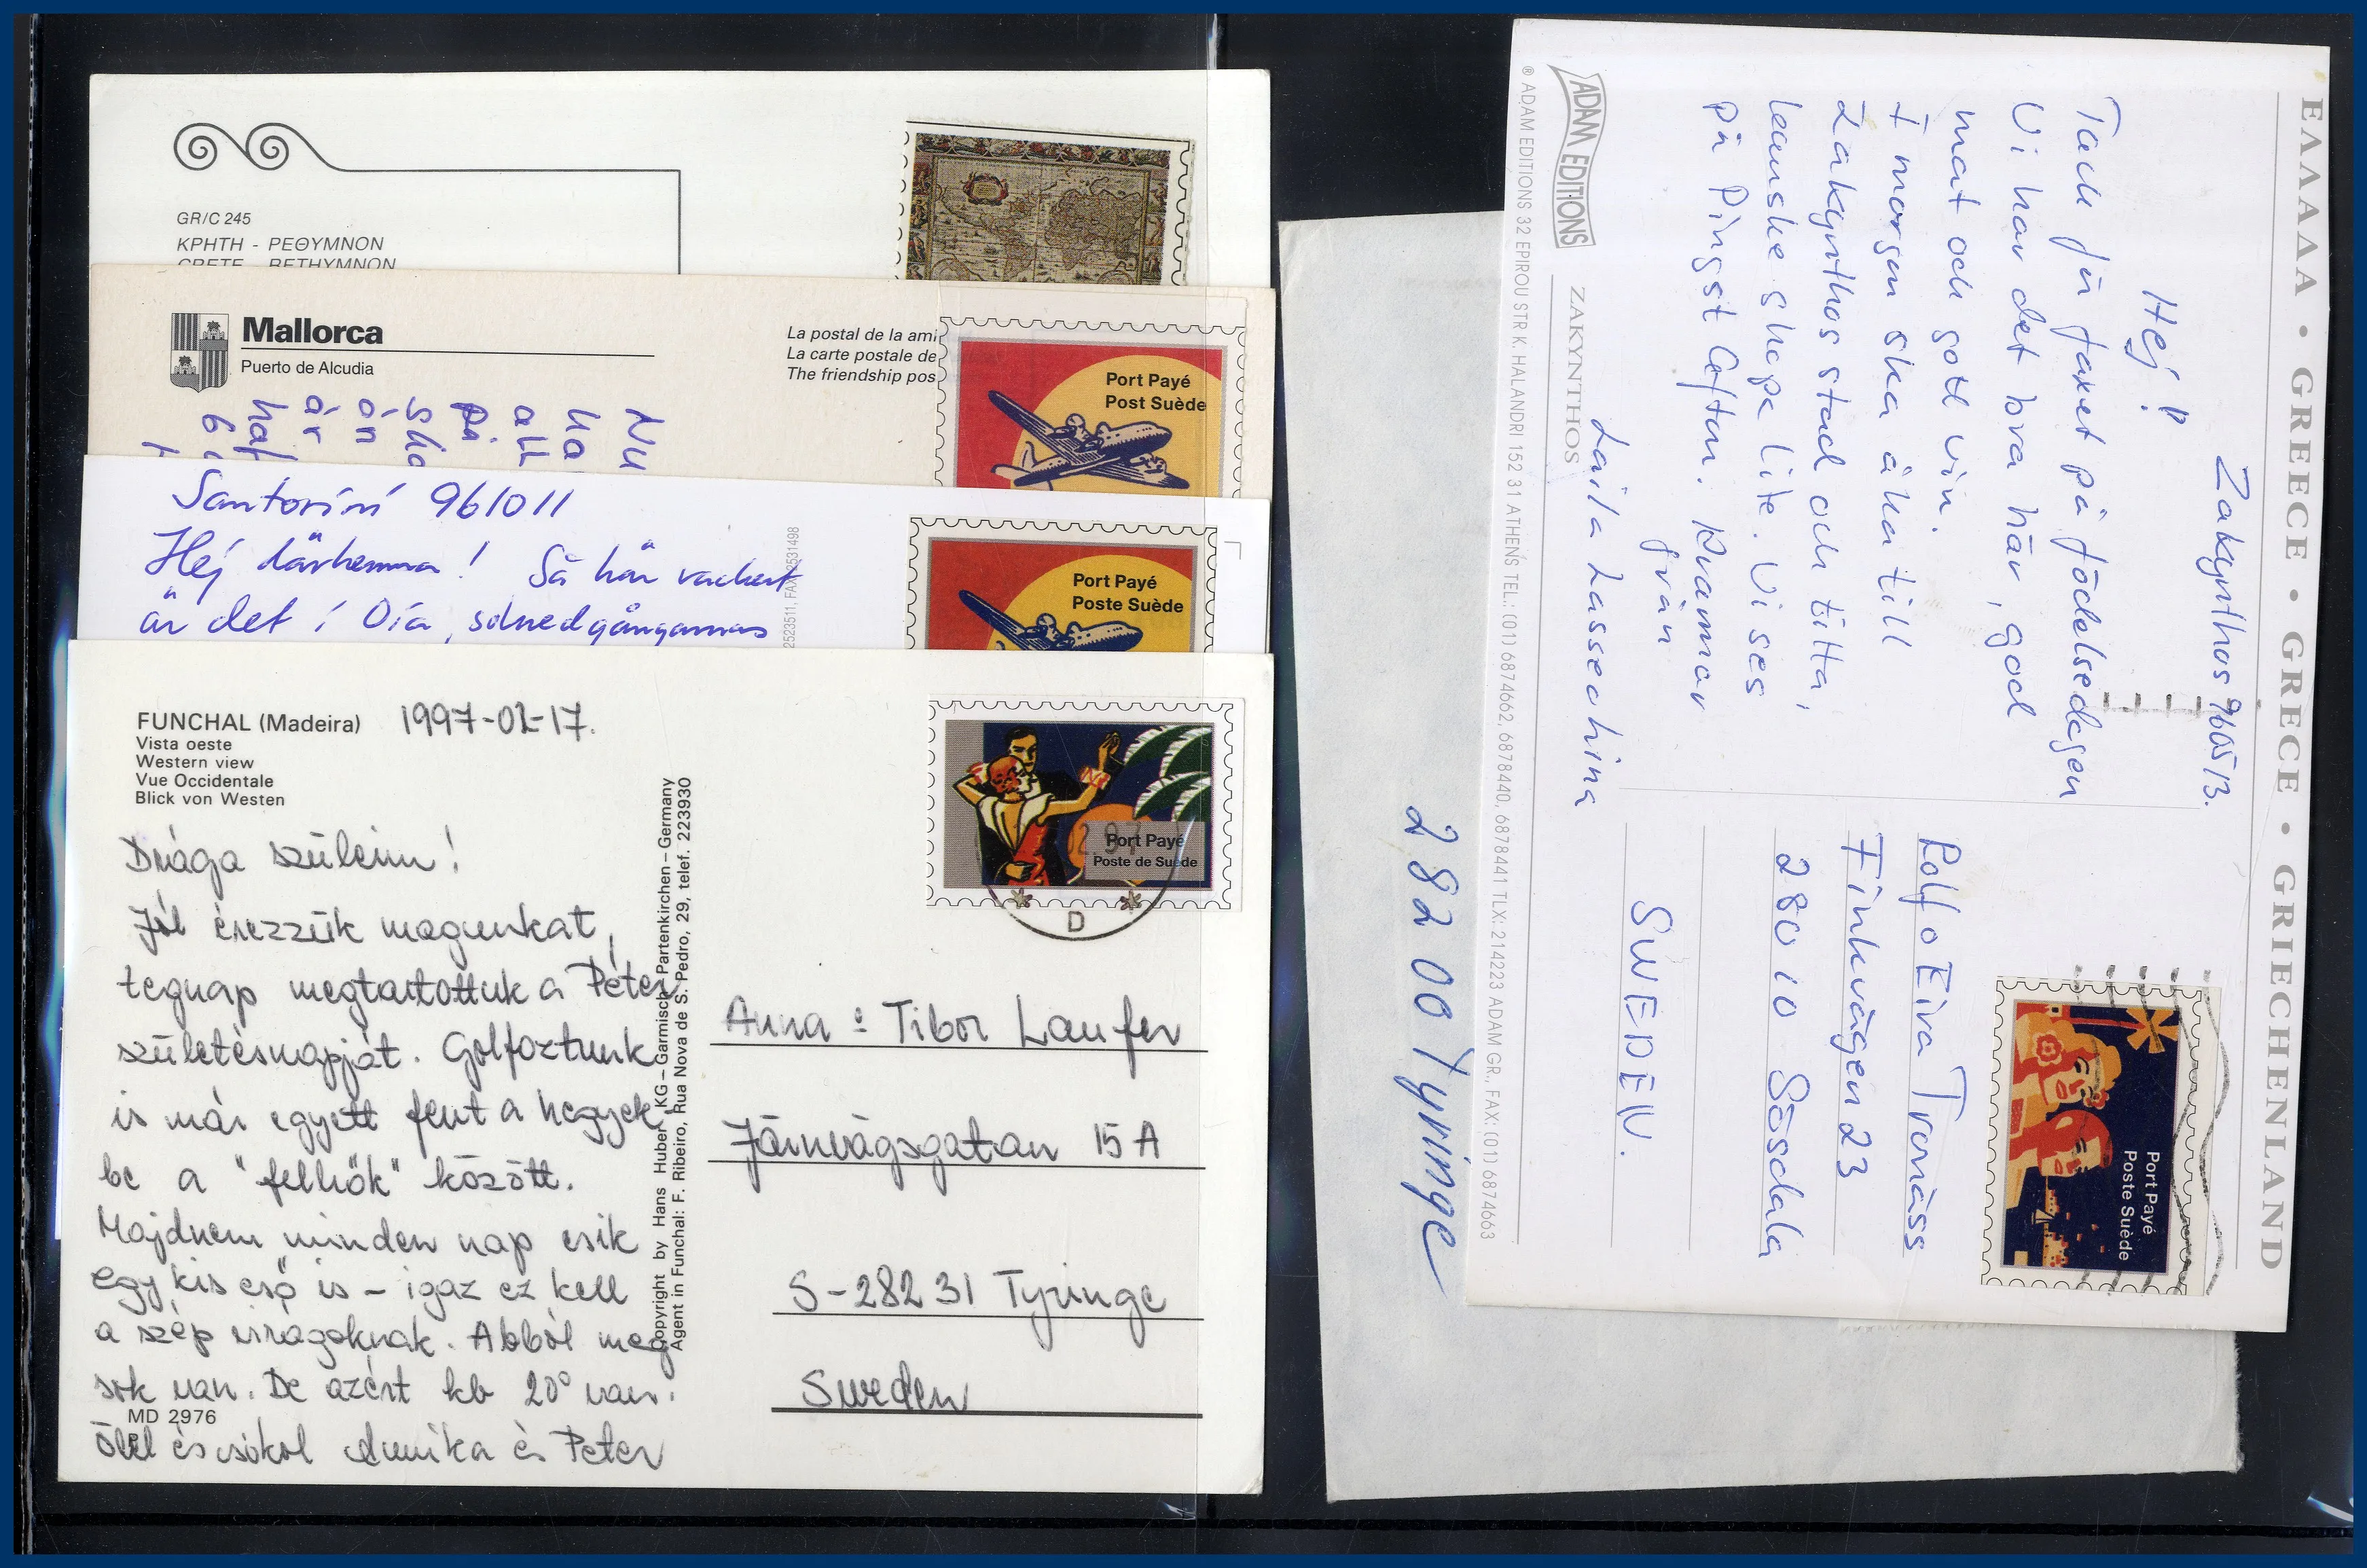 GR/C 245
ΚΡΗΤΗ - ΡΕΘΥΜΝΟΝ
CRETE - RETHYMNON
Mallorca
Puerto de Alcudia
La postal de la ami
La carte postale de
The friendship pos
Port Payé
Post Suède
Nu
ha
all
på
ska
ön
är
haf
Santorini 961011
Hej därhemma! Så här vackert
är det i Oia, solnedgångarnas
252351
FAX 2531498
Port Payé
Poste Suède
FUNCHAL (Madeira) 1997-02-17.
Vista oeste
Western view
Vue Occidentale
Blick von Westen
Drága szüleim!
Jól érezzük magunkat,
tegnap megtartottuk a Péter
születésnapját. Golfoztunk
is már egyett fent a hegyek-
be a "felhők" között.
Majdnem minden nap esik
egy kis eső is - igaz ez kell
a szép virágoknak. Abból meg
sok van. De azért kb 20° van.
MD 2976
Ölel és csókol Annika és Peter
Copyright by Hans Huber KG – Garmisch-Partenkirchen – Germany
Agent in Funchal: F. Ribeiro, Rua Nova de S. Pedro, 29, telef. 223930
Port Payé
Poste de Suède
2.97
D
Anna o Tibor Laufer
Järnvägsgatan 15A
S-282 31 Tyringe
Sweden
ΕΛΛΑΔΑ • GREECE • GRECE • GRIECHENLAND
Zakynthos 960513.
Hej!
Tack för faxet på födelsedagen
Vi har det bra här, god
mat och gott vin.
I morgon ska åka till
Zakynthos stad och titta,
kanske shopa lite. Vi ses
på Pingst Afton. Kramar
från
Laila Lassechina
ZAKYNTHOS
ADAM EDITIONS
® ADAM EDITIONS 32 EPIROU STR K. HALANDRI 152 31 ATHENS TEL.: (01) 6874662, 6878440, 6878441 TLX: 214223 ADAM GR., FAX: (01) 6874663
Port Payé
Poste Suède
Rolf o Eiva Tronäss
Finkvägen 23
280 10 Sösdala
SWEDEN.
282 00 Tyringe